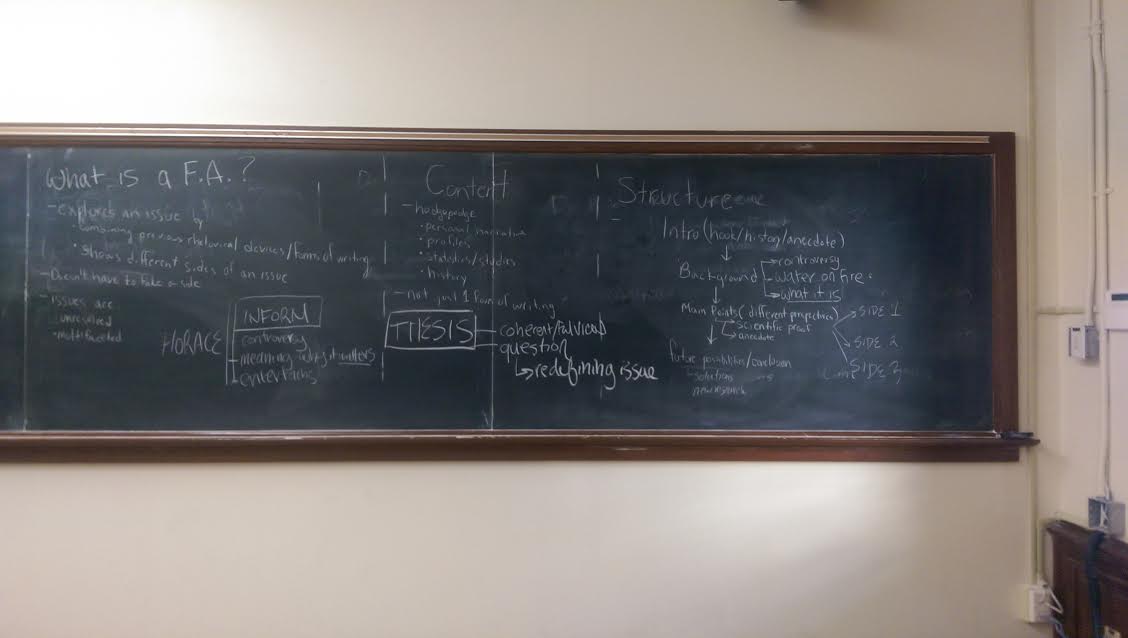 What is a F.A.?
- explores an issue by
· combining previous rhetorical devices/forms of writing
· shows different sides of an issue
- Doesn't have to take a side
- issues are
· unresolved
· multifaceted
HORACE
INFORM
controversy
meaning why it matters
entertaining
Content
- hodgepodge
· personal narrative
· profiles
· statistics/studies
· history
- not just 1 form of writing
THESIS
coherent/
question
redefining issue
Structure
Intro (hook/history/anecdote)
Background
controversy
water on fire
what it is
Main Points (different perspectives)
scientific proof
anecdote
SIDE 1
SIDE 2
SIDE 3
future possibilities/conclusion
solutions
new research